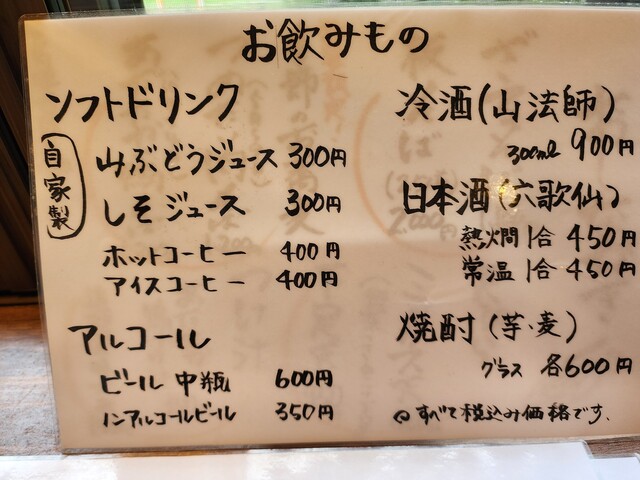 お飲みもの
ソフトドリンク
自家製
山ぶどうジュース 300円
しそジュース 300円
ホットコーヒー 400円
アイスコーヒー 400円
アルコール
ビール 中瓶 600円
ノンアルコールビール 350円
冷酒(山法師)
300ml 900円
日本酒(六歌仙)
熱燗 1合 450円
常温 1合 450円
焼酎(芋・麦)
グラス 各600円
◎すべて税込み価格です。